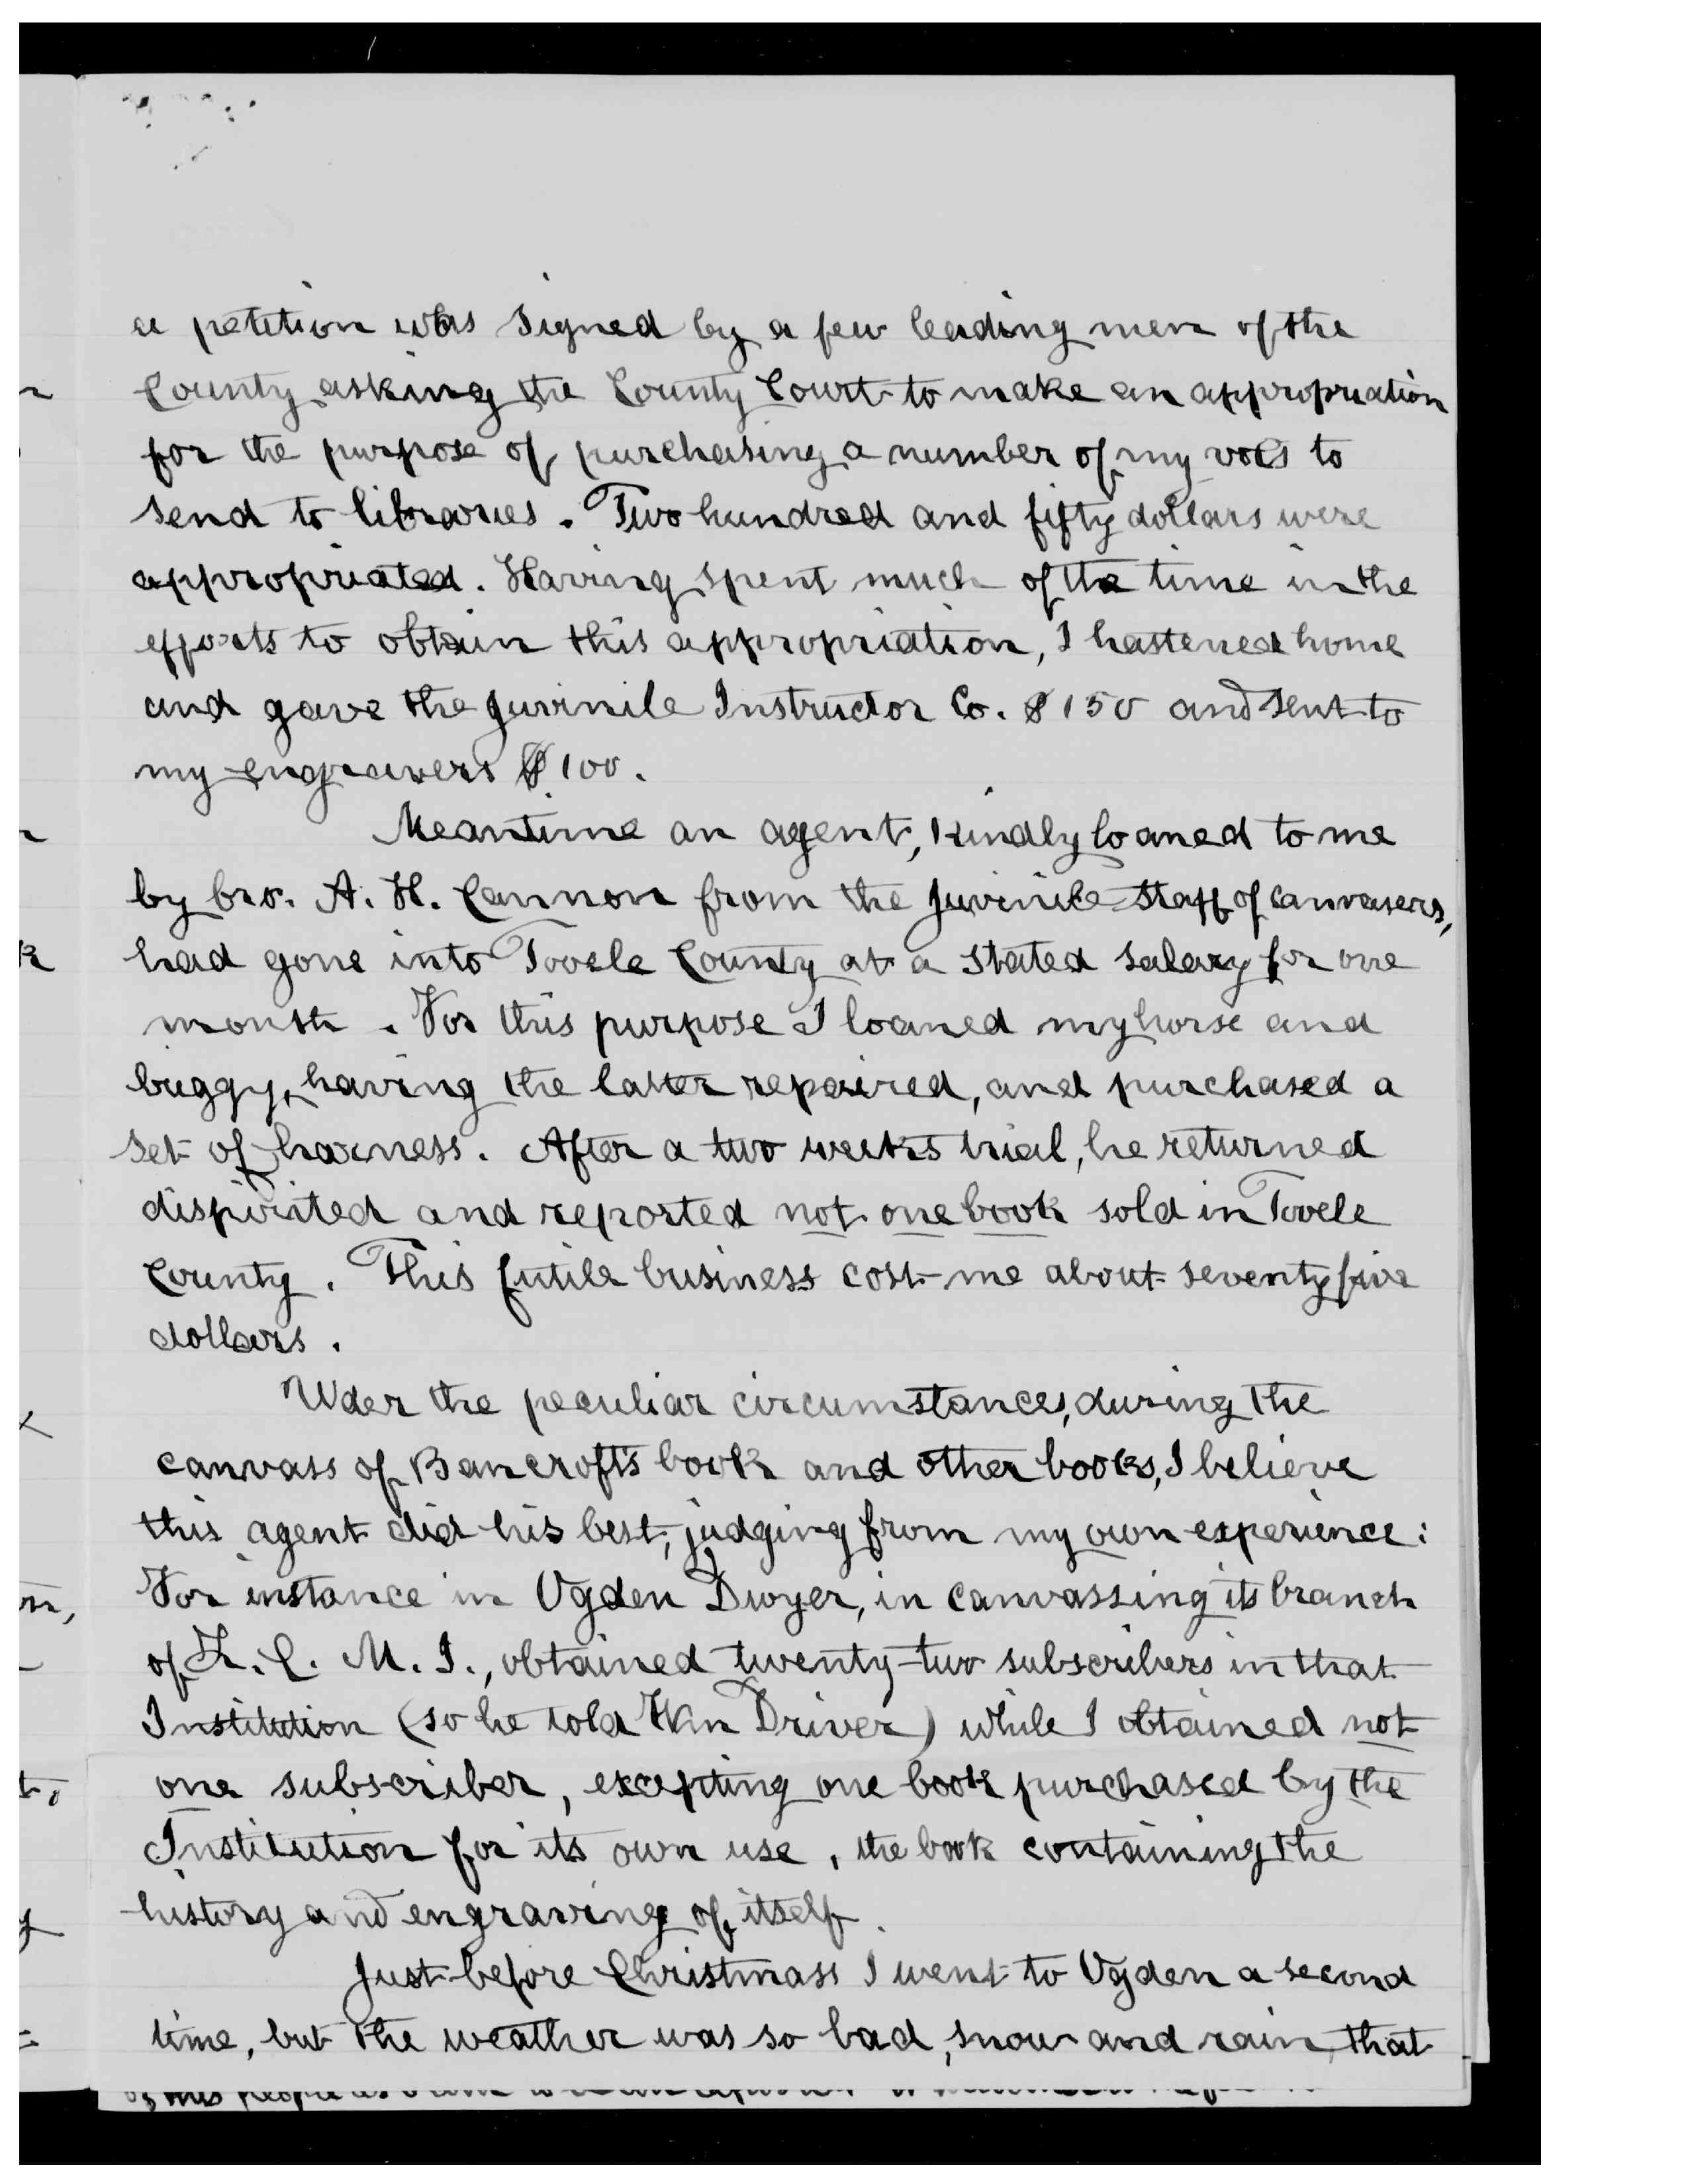 a petition was signed by a few leading men of the
County asking the County Court to make an appropriation
for the purpose of purchasing a number of my vols to
send to libraries. Two hundred and fifty dollars were
appropriated. Having spent much of the time in the
efforts to obtain this appropriation, I hastened home
and gave the Juvinile Instructor Co. $150 and sent to
my engravers $100.
Meantime an agent, kindly loaned to me
by bro. A. H. Cannon from the Juvinile staff of canvasers,
had gone into Tooele County at a stated salary for one
month. For this purpose I loaned my horse and
buggy, having the latter repaired, and purchased a
set of harness. After a two weeks trial, he returned
dispirited and reported not one book sold in Tooele
County. This futile business cost me about seventy five
dollars.
Uder the peculiar circumstances, during the
canvass of Bancroft's book and other books, I believe
this agent did his best, judging from my own experience:
For instance in Ogden Dwyer, in canvassing its branch
of Z. C. M. I., obtained twenty-two subscribers in that
Institution (so he told Wm Driver) while I obtained not
one subscriber, excepting one book purchased by the
Institution for its own use, the book containing the
history and engraving of itself.
Just before Christmass I went to Ogden a second
time, but the weather was so bad, snow and rain, that